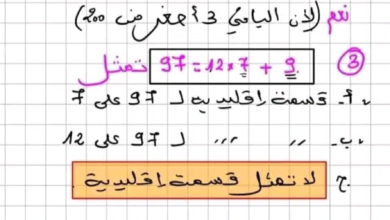 نعم (لأن الباقي 3 أصغر من 200)
③ 97 = 12 × 7 + 9 تمثل
أ- قسمة إقليدية لـ 97 على 7
ب- ,, ,, لـ 97 على 12
ج لا تمثل قسمة إقليدية.